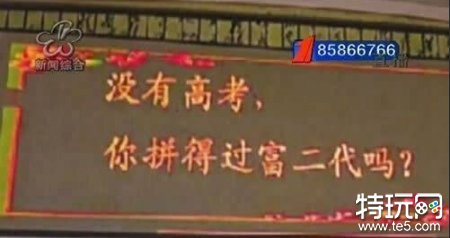 新闻综合
85866766
直播
没有高考，
你拼得过富二代吗？
特玩网
www.te5.com